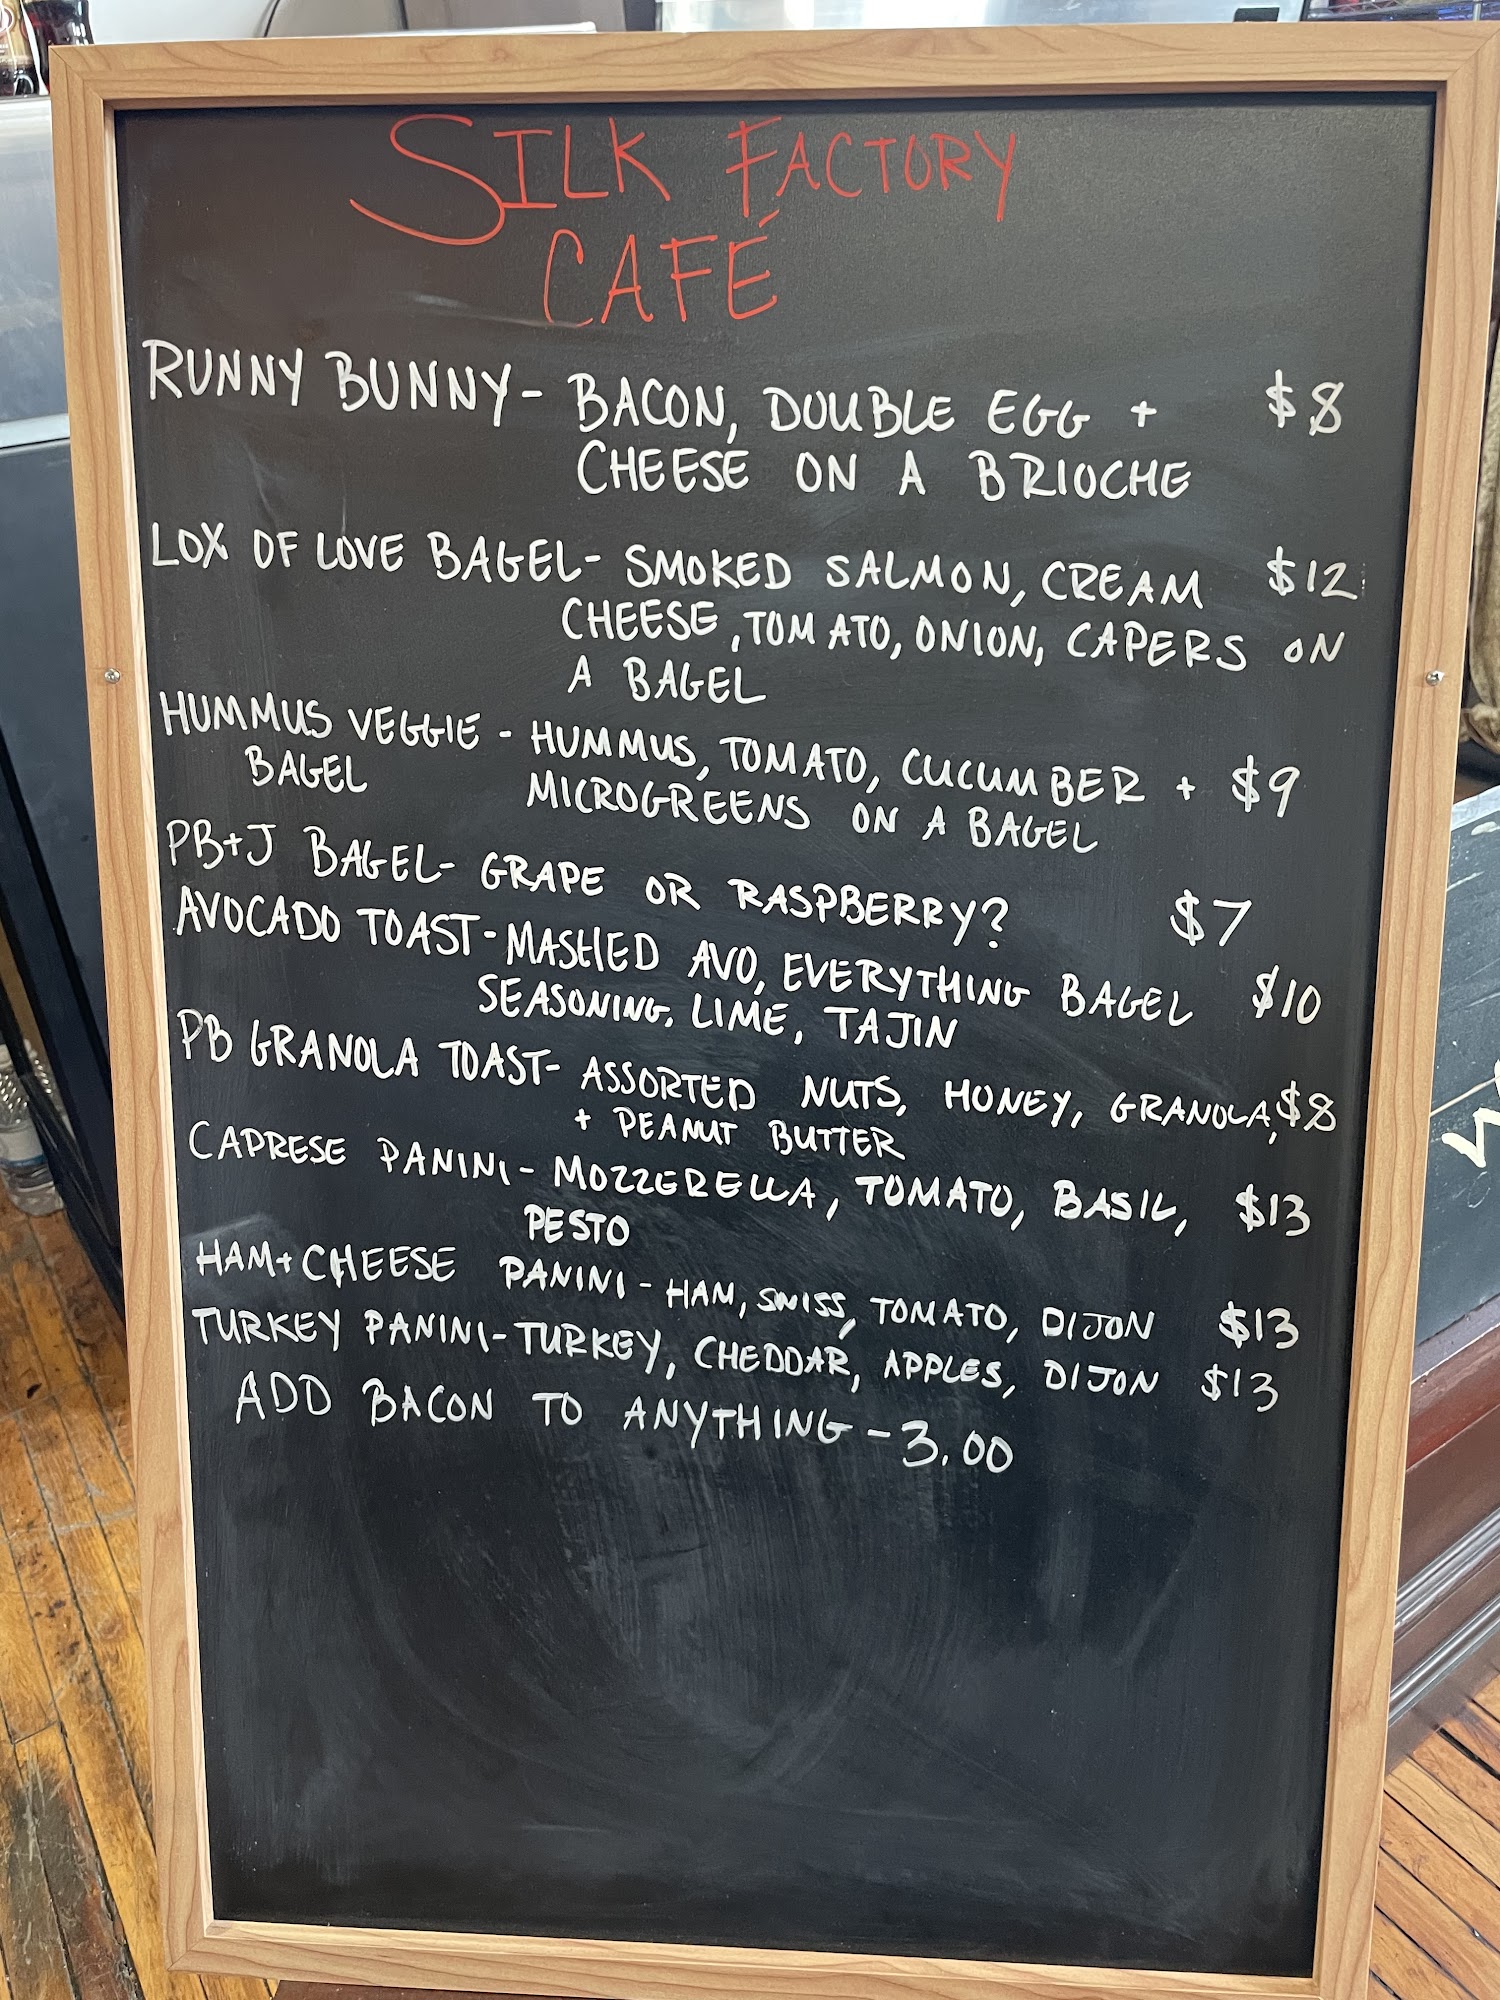 SILK FACTORY
CAFÉ
RUNNY BUNNY - BACON, DOUBLE EGG + $8
CHEESE ON A BRIOCHE
LOX OF LOVE BAGEL - SMOKED SALMON, CREAM $12
CHEESE, TOMATO, ONION, CAPERS ON
A BAGEL
HUMMUS VEGGIE - HUMMUS, TOMATO, CUCUMBER + $9
BAGEL MICROGREENS ON A BAGEL
PB+J BAGEL - GRAPE OR RASPBERRY? $7
AVOCADO TOAST - MASHED AVO, EVERYTHING BAGEL $10
SEASONING, LIME, TAJIN
PB GRANOLA TOAST - ASSORTED NUTS, HONEY, GRANOLA, $8
+ PEANUT BUTTER
CAPRESE PANINI - MOZZERELLA, TOMATO, BASIL, $13
PESTO
HAM + CHEESE PANINI - HAM, SWISS, TOMATO, DIJON $13
TURKEY PANINI - TURKEY, CHEDDAR, APPLES, DIJON $13
ADD BACON TO ANYTHING - 3.00